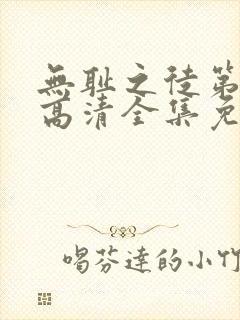 無耻之徒第
高清全集免
喝芬達的小竹